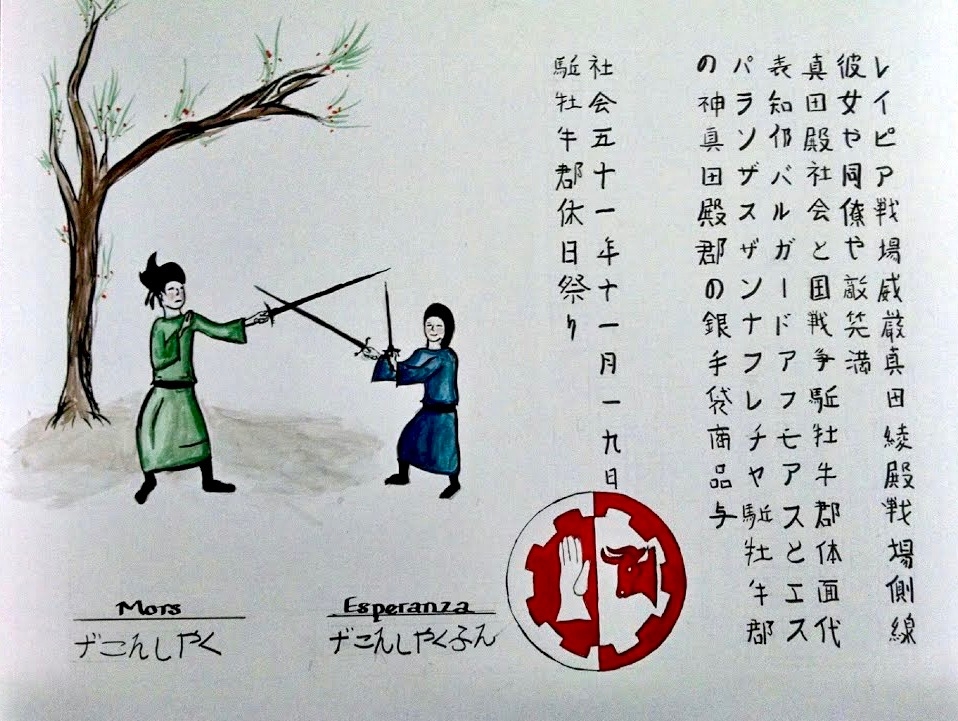 レイピア戦場威厳真田綾殿戦場側線
彼女や同僚や敵笑満
真田殿社会と国戦争駈牡牛郡体面代
表知仰バルガードアフモアスとエス
パランザスザンナフレチャ駈牡牛郡
の神真田殿郡の銀手袋商品与
社会五十一年十一月一九日
駈牡牛郡休日祭り
Mors
ザこんしやく
Esperanza
ザこんしやくふん